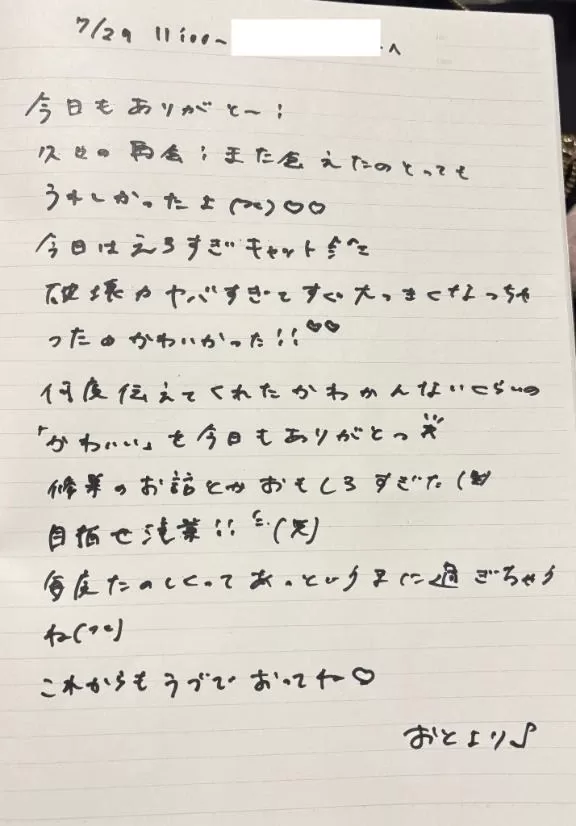 7/29 11:00~ へ
今日もありがと〜!
久々の再会!また会えたのとっても
うれしかったよ♡♡
今日はえろすぎキャット
破壊力ヤバすぎてすぐ大っきくなっちゃ
ったのかわいかった!!♡♡
何度伝えてくれたかわかんないくらいの
「かわいい」を今日もありがとっ
修業のお話とかおもしろすぎた(笑)
目指せ 業!!(笑)
毎度たのしくってあっという まに過ぎちゃう
ね
これからも うでで おってね♡
おとより♪